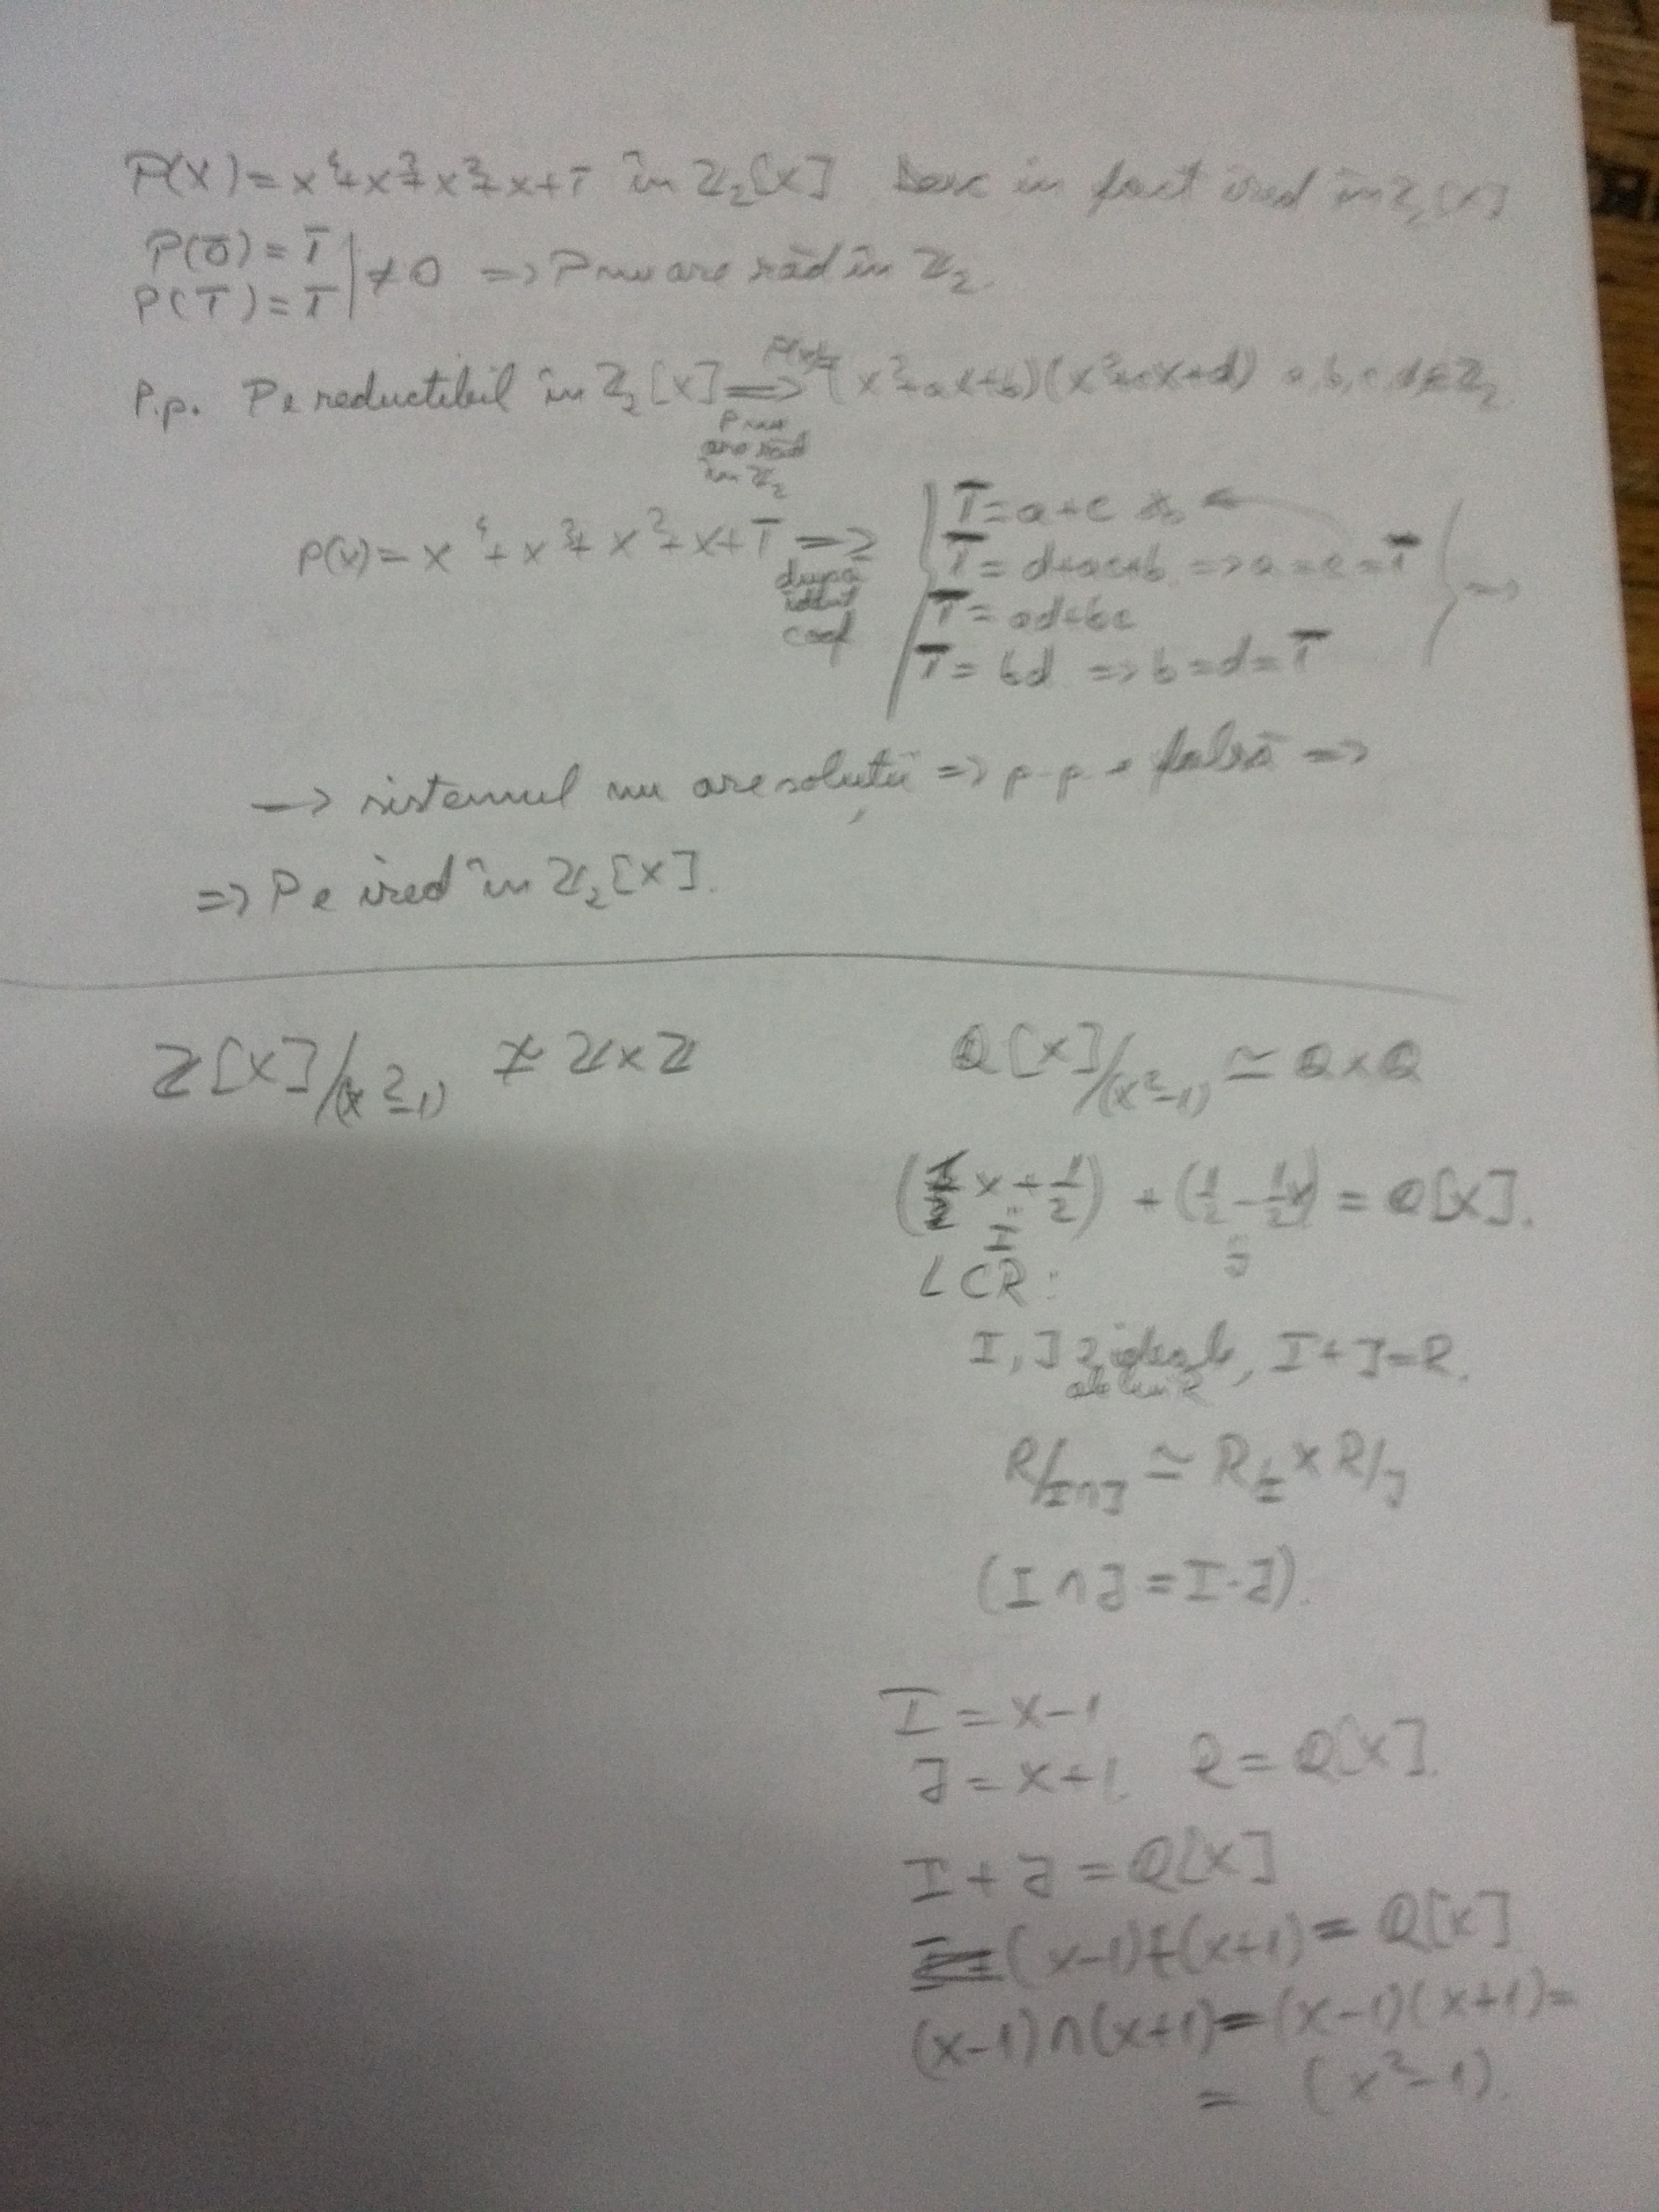 P(X) = x⁴+x³+x²+x+1̄ în ℤ₂[X] in fact ired în ℤ₂[X]
P(0̄) = 1̄
P(1̄) = 1̄ | ≠ 0 => P nu are răd în ℤ₂.
P.p. P e reductibil în ℤ₂[X] => P(x)= (x²+ax+b)(x²+cx+d) a,b,c,d∈ℤ₂
P nu
are răd
în ℤ₂
P(x) = x⁴+x³+x²+x+1̄ =>
după
coef
1̄ = a+c
1̄ = d+ac+b => a=c=1̄
1̄ = ad+bc
1̄ = bd => b=d=1̄ } =>
-> sistemul nu are soluții => p.p. e falsă =>
=> P e ired în ℤ₂[X].
ℤ[X]/(x²-1) ≄ ℤ×ℤ
ℚ[X]/(x²-1) ≃ ℚ×ℚ
(½x+½) + (½-½x) = ℚ[X].
I J
LCR:
I, J 2 ideale, I+J=R.
ale lui R
R/I∩J ≃ R/I × R/J
(I∩J = I·J).
I = x-1
J = x+1. R = ℚ[X].
I+J = ℚ[X]
(x-1)+(x+1) = ℚ[X]
(x-1)∩(x+1) = (x-1)(x+1) =
= (x²-1).